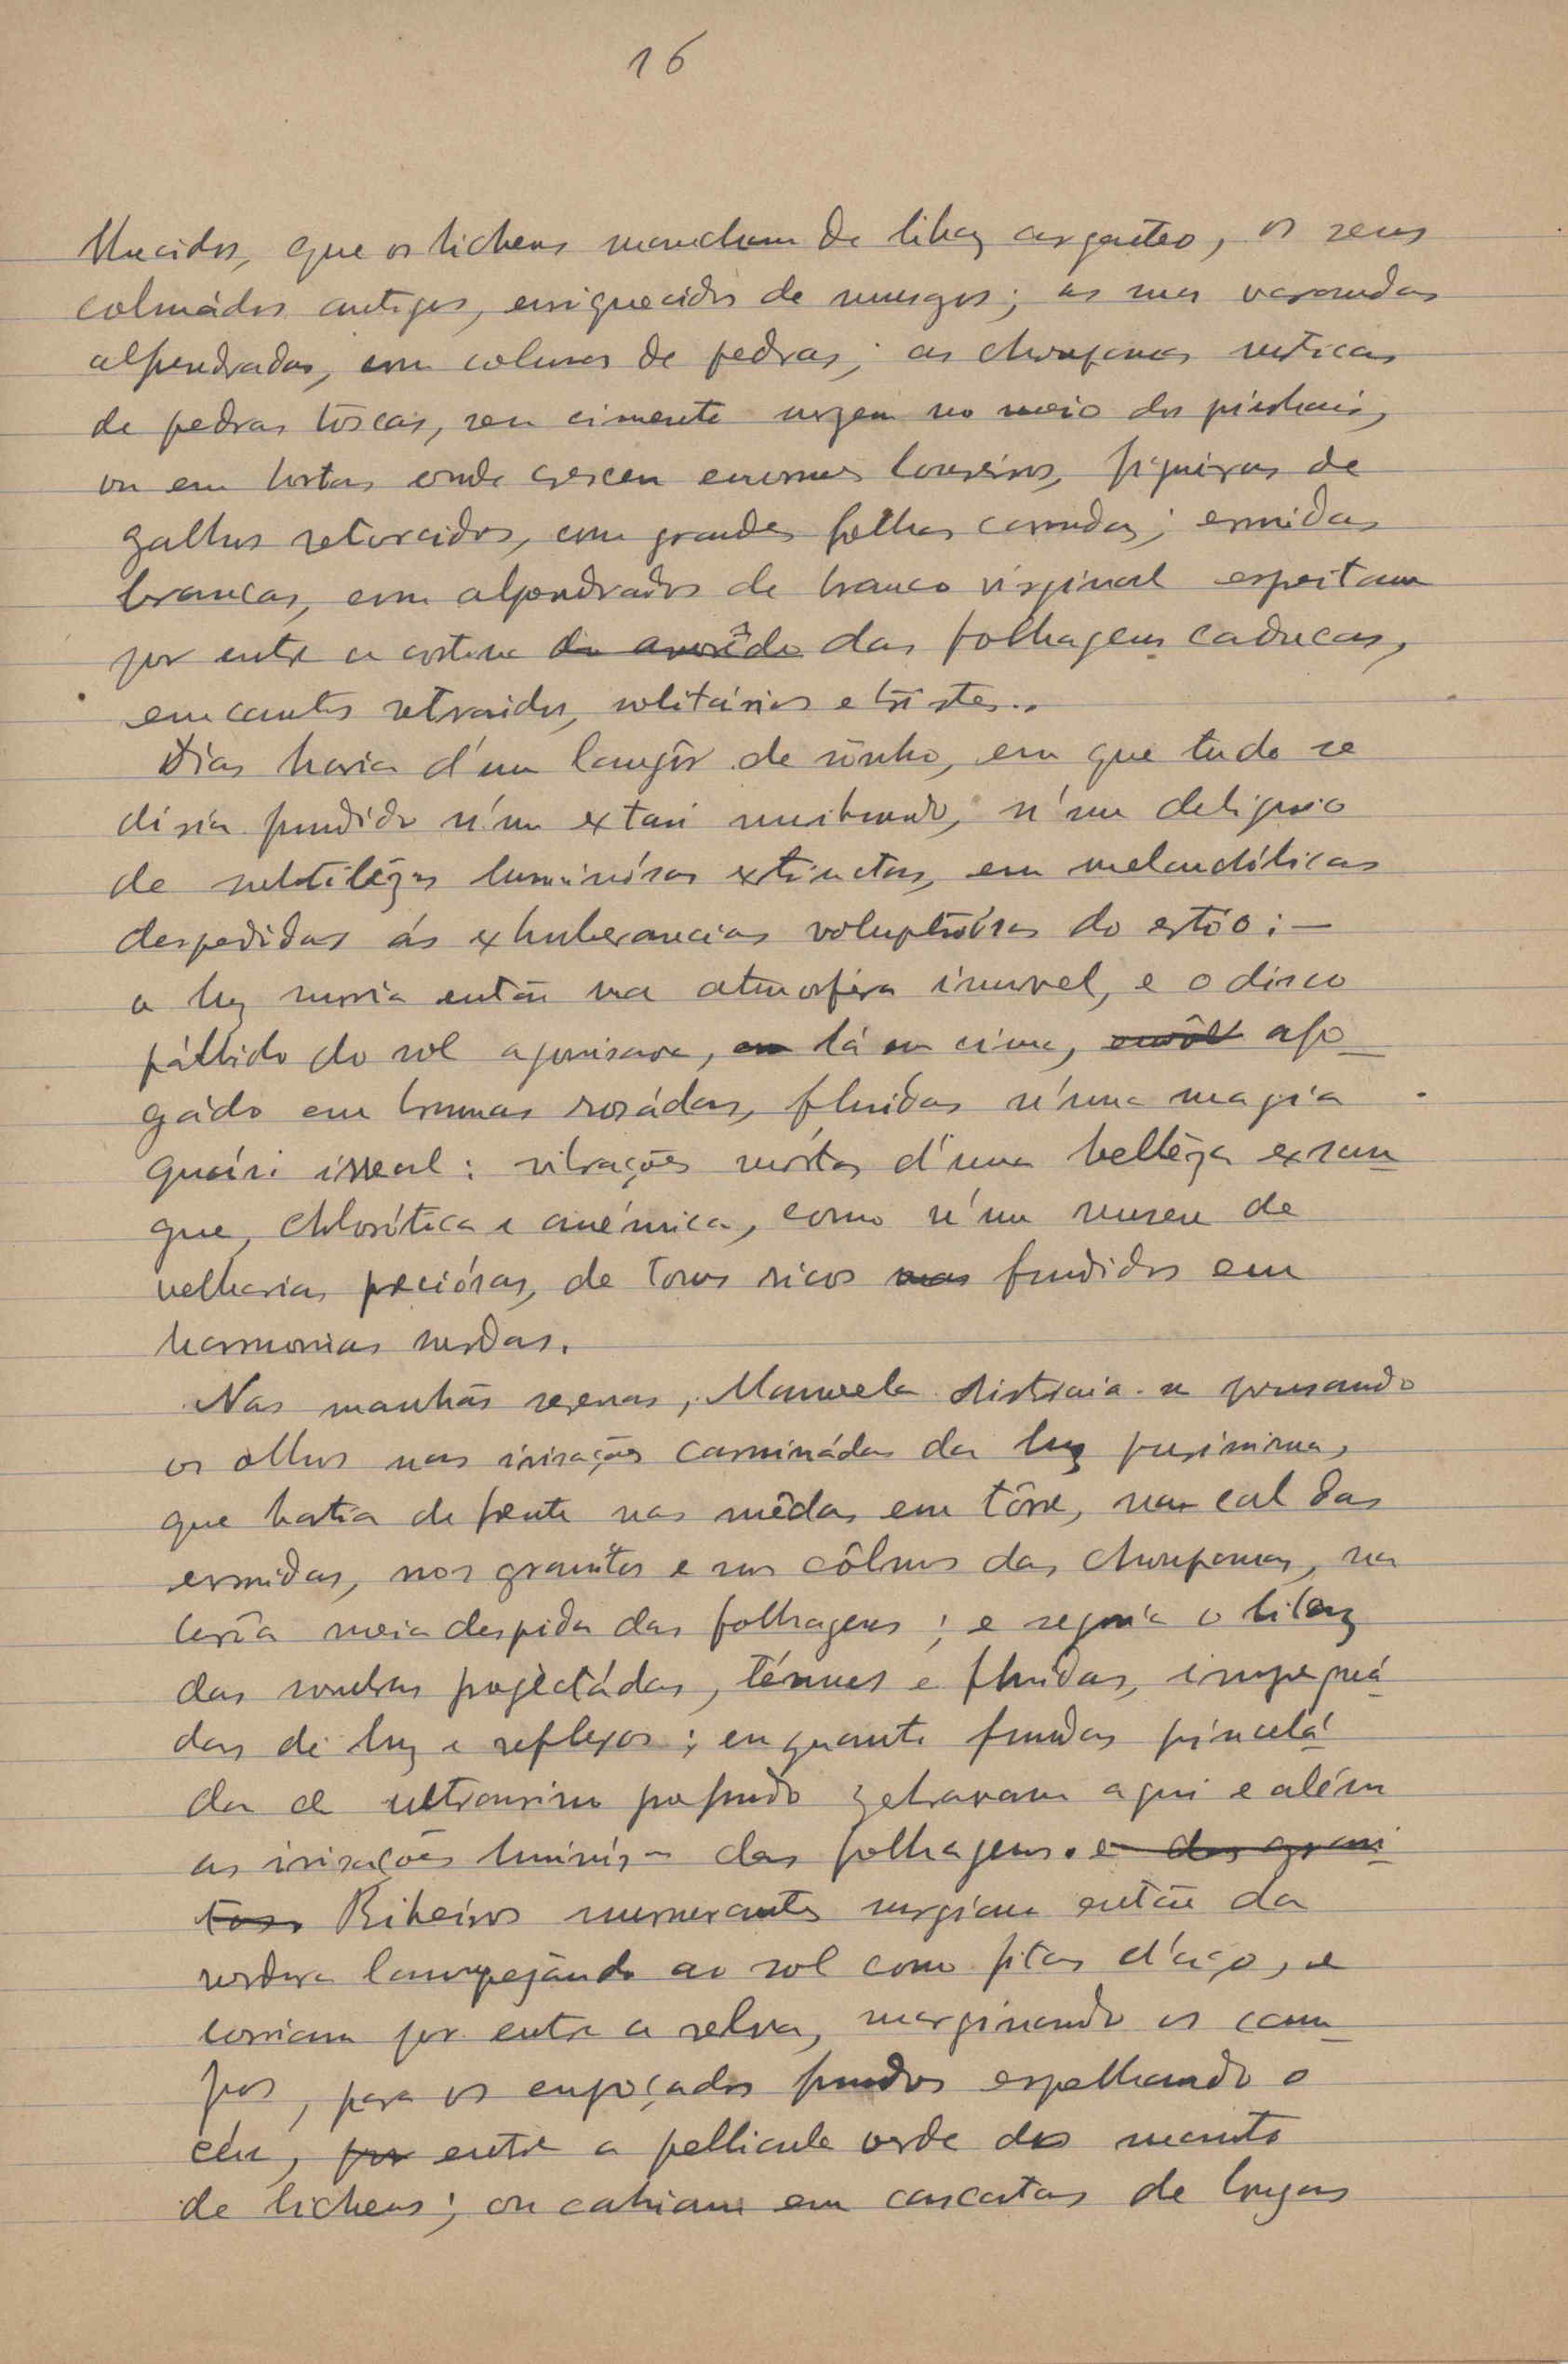 16
llucidos, que os lichens mancham de lilaz argenteo, os seus
colmádos antigos, enriquecidos de musgos; as suas varandas
alpendradas, com colunas de pedras; as choupanas rusticas
de pedras tôscas, sem cimento surgem no meio dos pinhais,
ou em hortas onde crescem enormes loureiros, figueiras de
galhos retorcidos, com grandes folhas carnudas; ermidas
brancas, com alpendrados de branco virginal espreitam
por entre a cortina do arvorêdo das folhagens caducas,
em cantos retraidos, solitários e tristes..
Dias havia d'um langôr de sônho, em que tudo se
diria fundido n'um extasi moribundo, n'um deliquio
de subtilêzas luminósas extinctas, em melancólicas
despedidas ás exhuberancias voluptuósas do estío: —
a luz morria então na atmosféra imovel, e o disco
pállido do sol agonisava, em lá em cima, envôlt afo-
gádo em brumas rosádas, fluidas n'uma magía
quási irreal: vibrações mórtas d'uma bellêza exsan-
gue, chlorótica e anémica, como n'um museu de
velharias preciósas, de tons ricos mas fundidos em
harmonias surdas.
Nas manhãs serenas, Manuela distraia-se pousando
os olhos nas irisações carminádas da luz purissima,
que batia de frente nas mêdas em tôrre, na cal das
ermidas, nos granitos e nos côlmos das choupanas, na
meia despida das folhagens; e seguía o lilaz
das sombras projèctádas, ténues e fluidas, impregná-
das de luz e reflexos; enquanto fundas pincelá-
das de ultramarino profundo zebravam aqui e além
as irisações luminósas das folhagens. e dos grani-
tos. Ribeiros murmurantes surgiam então da
verdura lampejando ao sol como fitas d'aço, e
corriam por entre a relva, marginando os cam-
pos, para os empoçados fundos espelhando o
céu, por entre a pellicula verde do manto
de lichens; ou cahiam em cascatas de longas